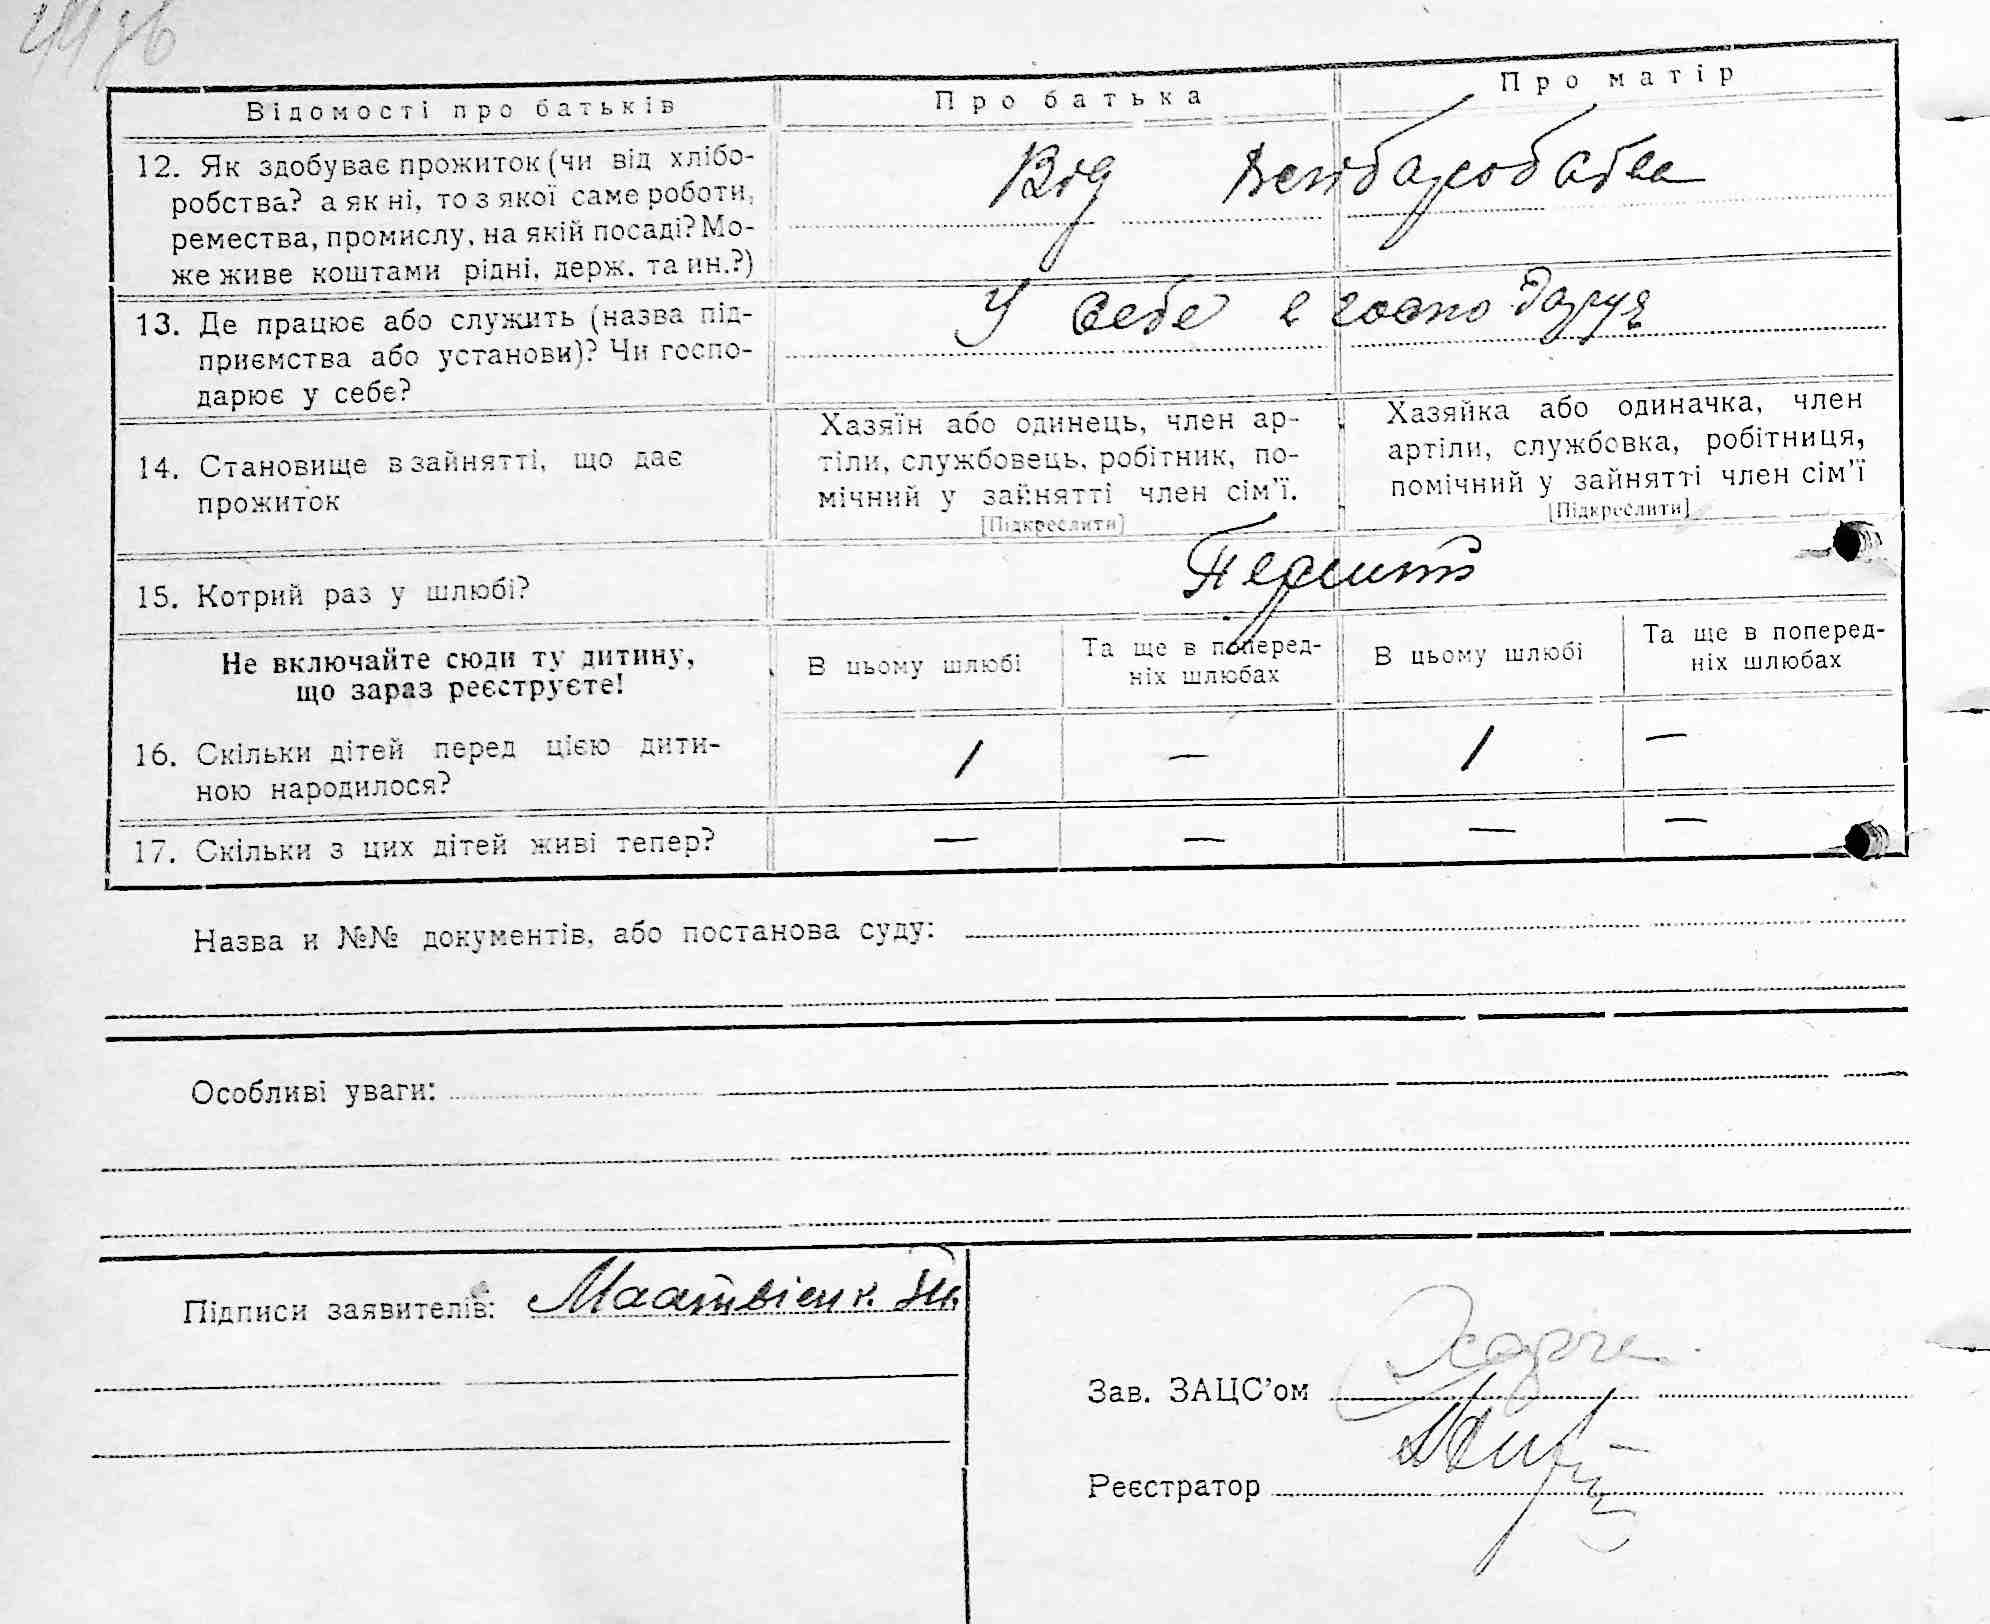 Відомості про батьків Про батька Про матір
12. Як здобуває прожиток (чи від хлібо-
робства? а як ні, то з якої саме роботи,
ремества, промислу, на якій посаді? Мо-
же живе коштами рідні, держ. та ин.?)
Від
13. Де працює або служить (назва під-
приємства або установи)? Чи госпо-
дарює у себе?
У себе в господарує
14. Становище в зайнятті, що дає
прожиток
Хазяїн або одинець, член ар-
тіли, службовець, робітник, по-
мічний у зайнятті член сім'ї.
[Підкреслити]
Хазяйка або одиначка, член
артіли, службовка, робітниця,
помічний у зайнятті член сім'ї
[Підкреслити]
15. Котрий раз у шлюбі?
Перший
Не включайте сюди ту дитину,
що зараз реєструєте!
В цьому шлюбі
Та ще в поперед-
ніх шлюбах
В цьому шлюбі
Та ще в поперед-
ніх шлюбах
16. Скільки дітей перед цією дити-
ною народилося?
1 — 1 —
17. Скільки з цих дітей живі тепер? — — — —
Назва и №№ документів, або постанова суду:
Особливі уваги:
Підписи заявителів: Маатвієнк.
Зав. ЗАЦС'ом
Реєстратор